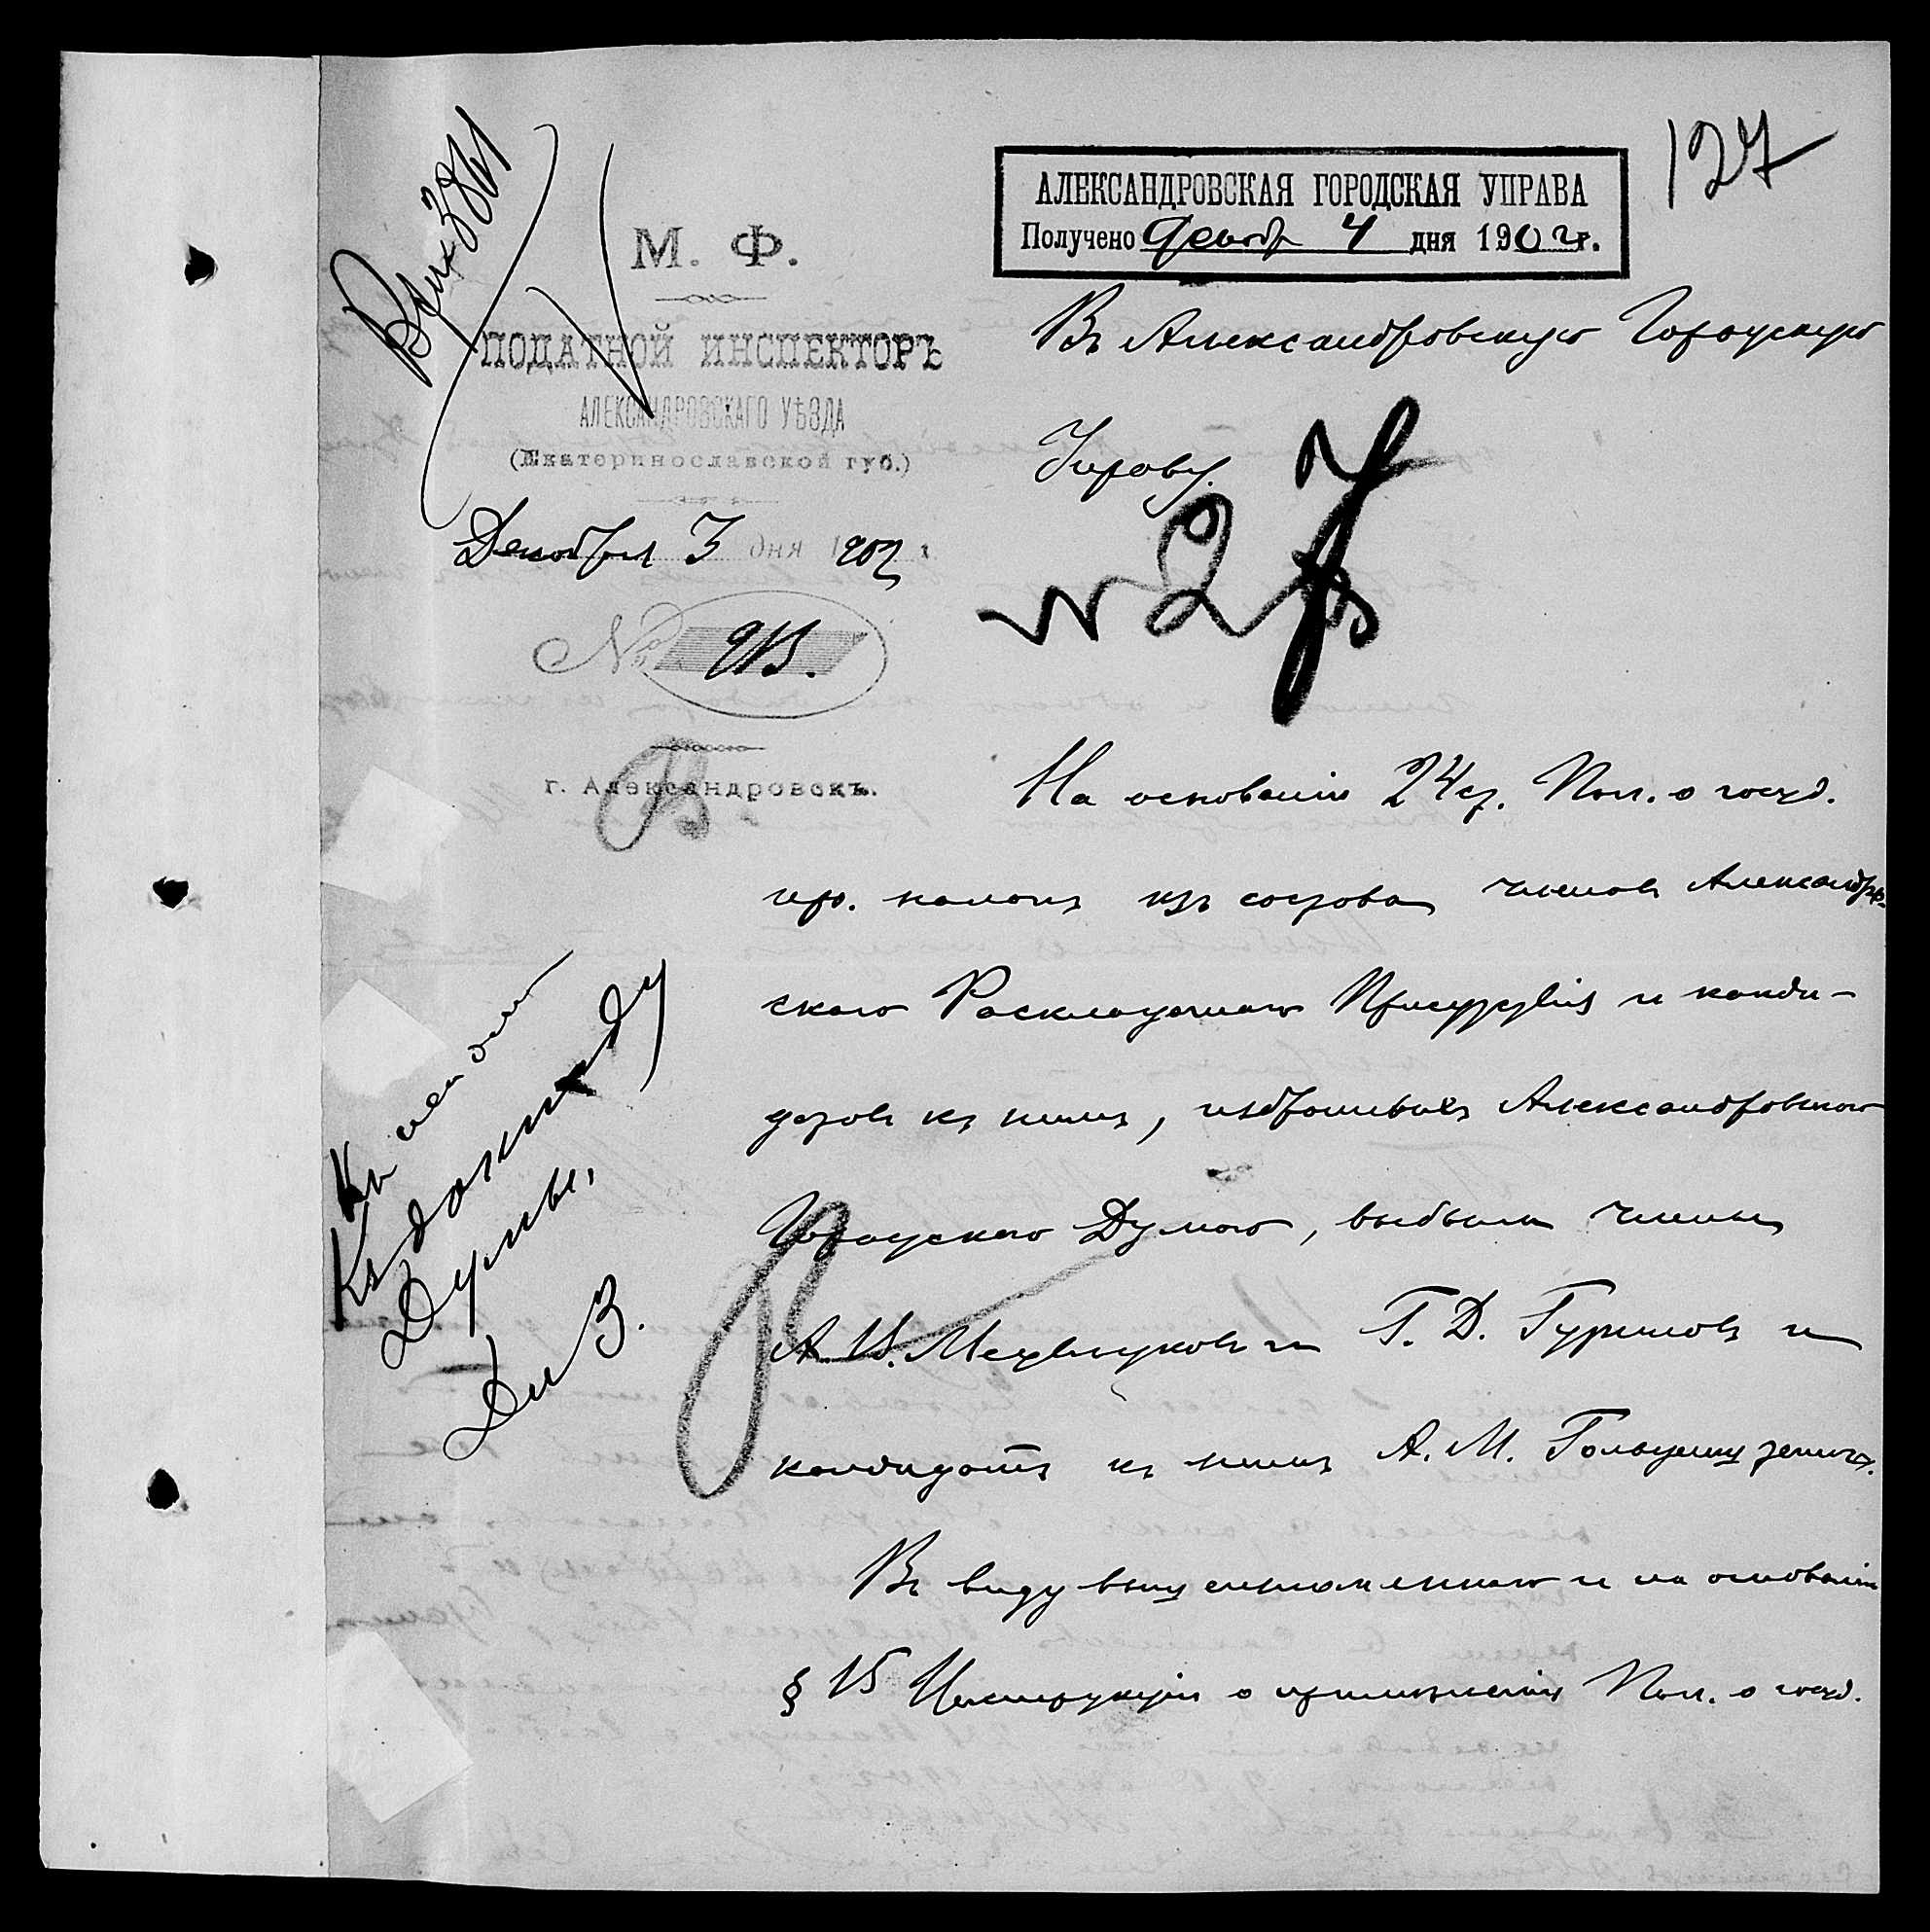 127
АЛЕКСАНДРОВСКАЯ ГОРОДСКАЯ УПРАВА
Получено Декабр 4 дня 1902 г.
Вх 3861
М. Ф.
ПОДАТНОЙ ИНСПЕКТОРЪ
АЛЕКСАНДРОВСКАГО УѢЗДА
(Екатеринославской губ.)
Декабря 3 дня 1902 г.
№ 915.
г. Александровскъ.
Въ Александровскую Городскую
Управу.
На основаніи 24 ст. Пол. о госуд.
пром. налогѣ изъ состава членовъ Александров-
скаго Раскладочнаго Присутствія и канди-
датовъ къ нимъ, избранныхъ Александровскою
Городскою Думою, выбыли члены
А. И. Медвѣдковъ и Г. Д. Гуриновъ и
кандидатъ къ нимъ А. М.
Въ виду вышеизложеннаго и на основаніи
§ 15 Инструкціи о примѣненіи Пол. о госуд.
Къ докладу
Думы.